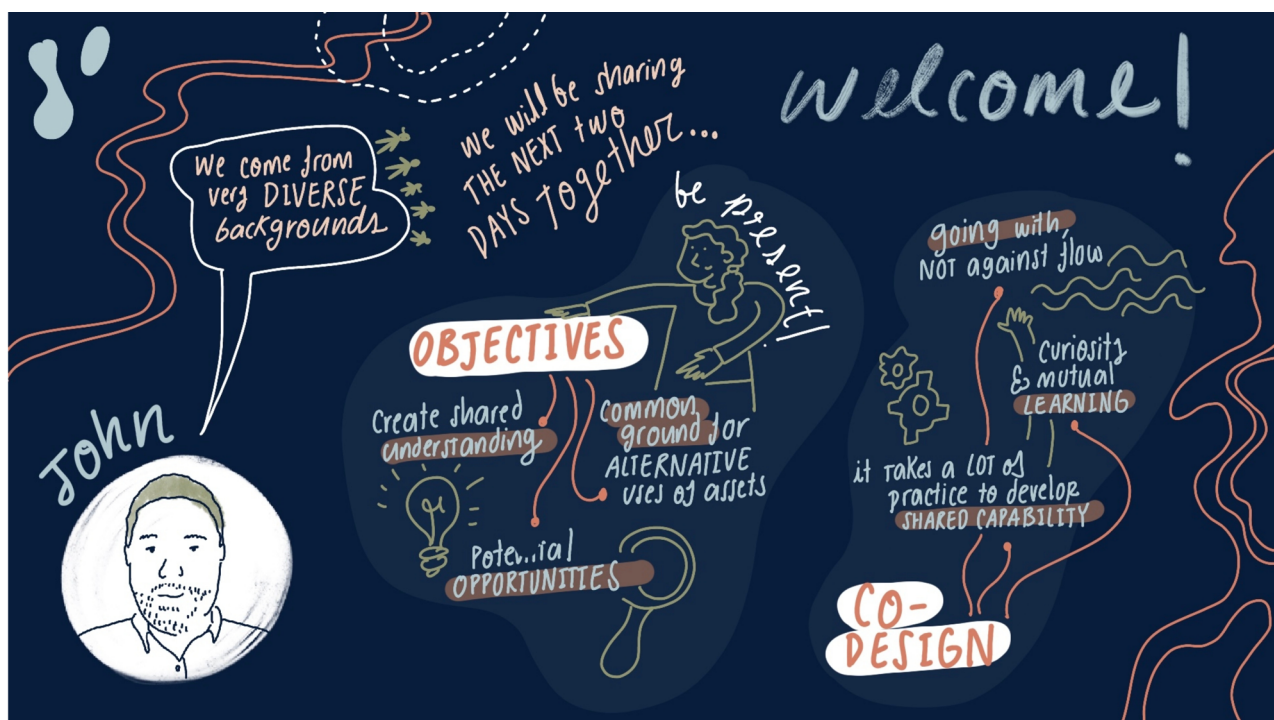 welcome!
We come from
very DIVERSE
backgrounds
John
we will be sharing
THE NEXT two
DAYS together...
be present!
OBJECTIVES
Create shared
understanding
Common
ground for
ALTERNATIVE
uses of assets
OPPORTUNITIES
going with,
NOT against flow
curiosity
& mutual
LEARNING
it TAKES a LOT of
practice to develop
SHARED CAPABILITY
CO-
DESIGN